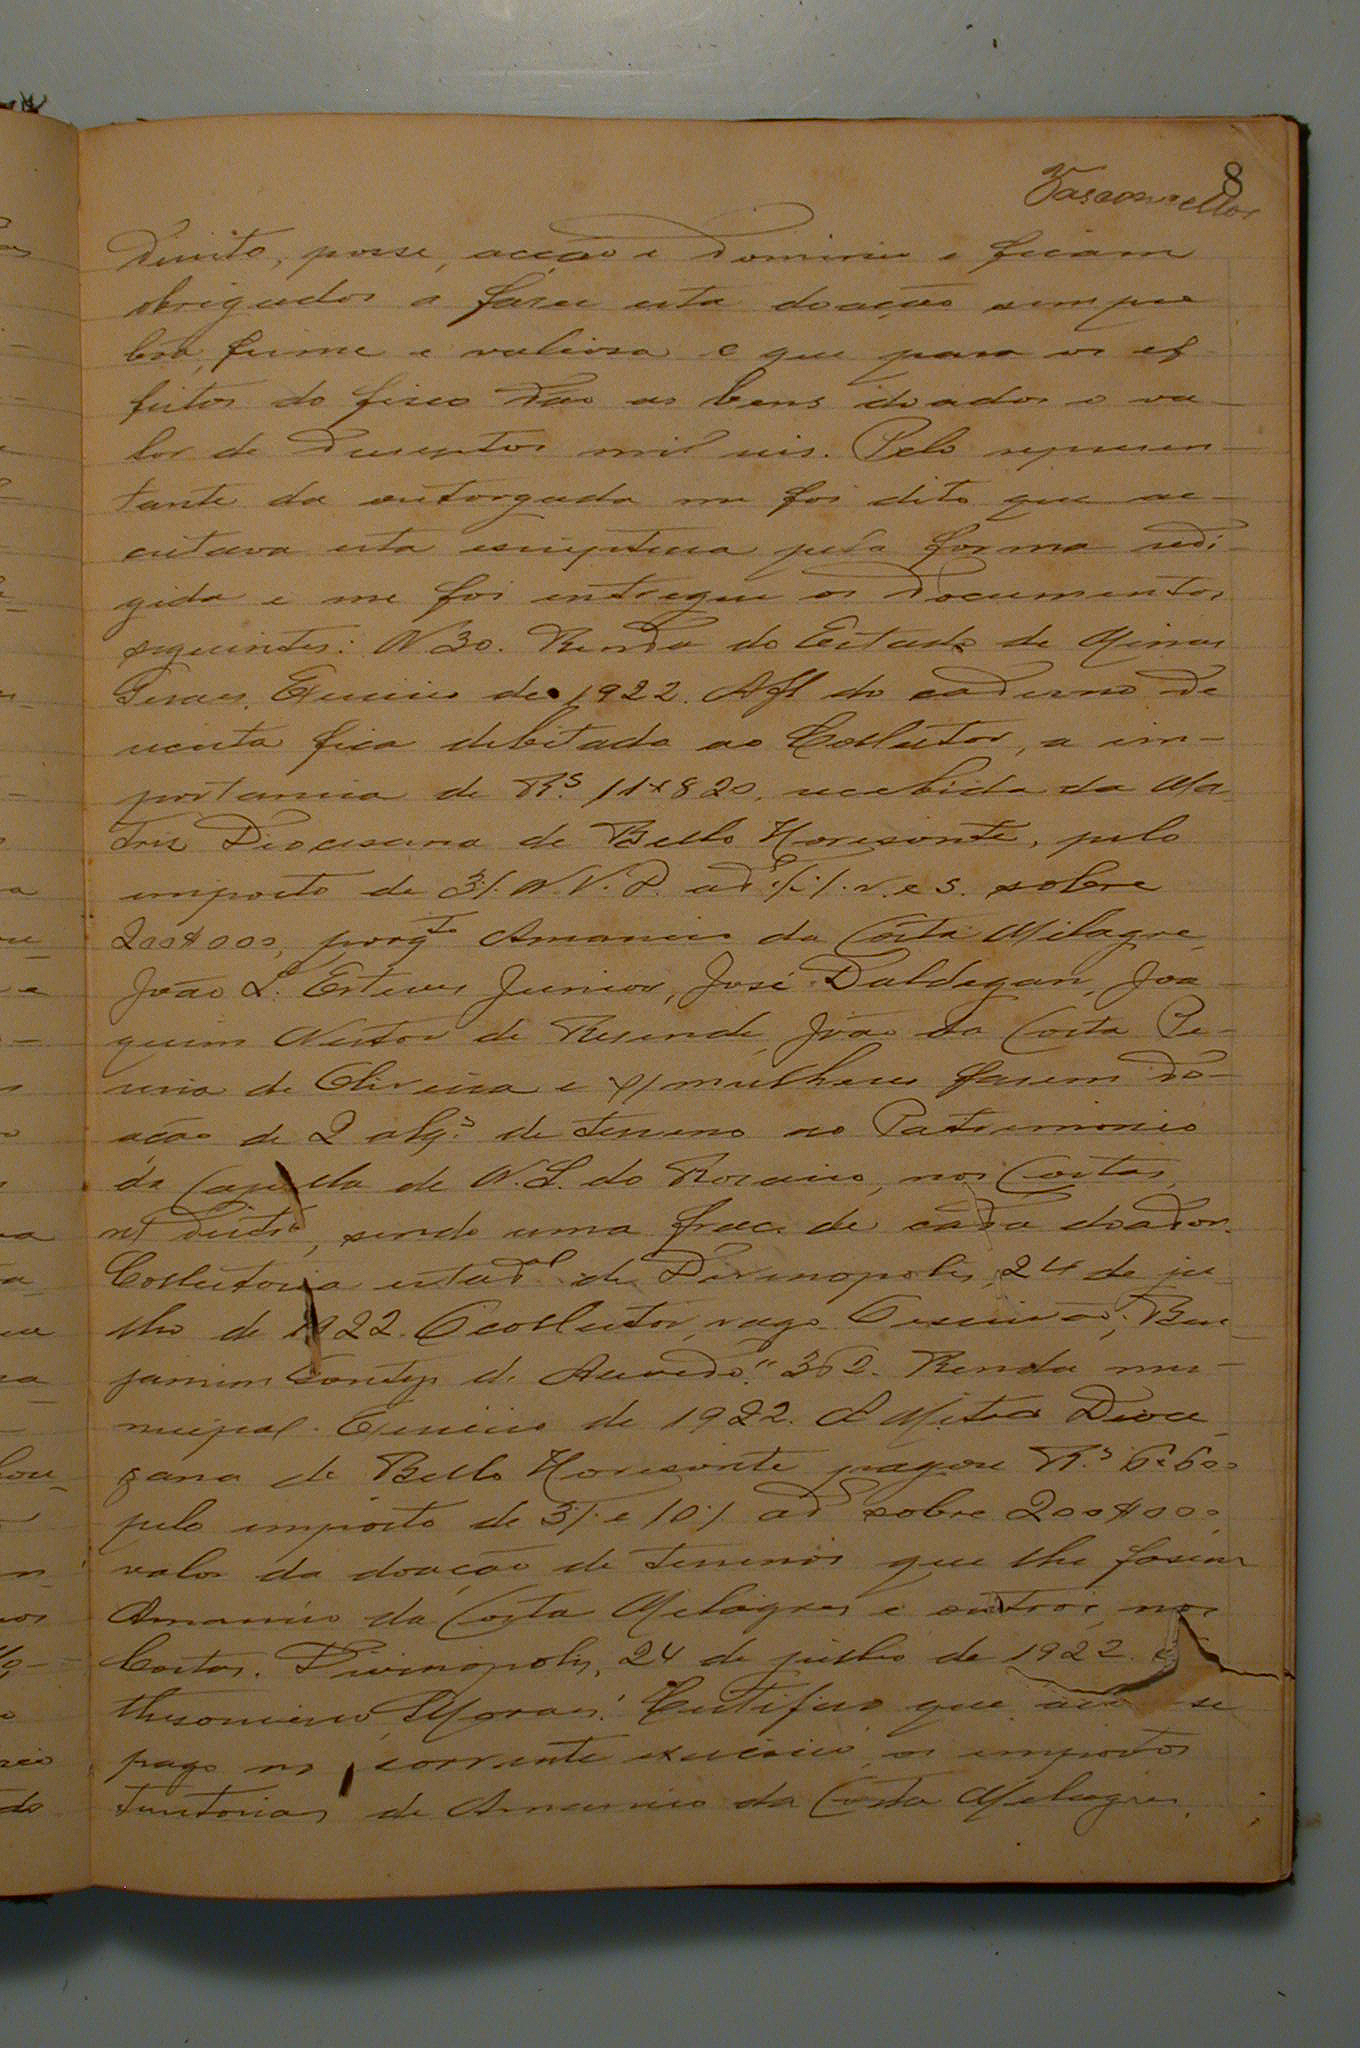 8
Vasconcellos
direito, posse, acção e dominio e ficam
obrigados a faser esta doação sempre
bôa, firme e valiosa e que para os ef
feitos do fisco dão as bens doados o va-
lor de dusentos mil reis. Pelo represen-
tante da outorgada me foi dito que ac-
ceitava esta escriptura pela forma redi-
gida e me foi entregue os documentos
seguintes: N 30. Renda do Estado de Minas
Geraes. Exercicio de 1922. A fl do caderno de
receita fica debitada ao Collector, a im-
portancia de Rs. 11$820, recebida da Ma-
tris Diocesana de Bello Horisonte, pelo
imposto de 3% N. V. D. sobre
200$000, porqto Amancio da Costa Milagre,
João L. Esteves Junior, José Daldegan, Joa-
quim Nestor de Resende, João da Costa Pe-
reira de Oliveira e s/ mulheres fasem do-
ação de 2 alqs. de terreno ao Patrimonio
da Capella de N. S. do Rosario, nos Costas,
n/ distro, sendo uma frac. de cada doador.
Collectoria estadal de Divinopolis, 24 de ju
lho de 1922. O collector, vago. Escrivão, Ben-
jamim Contijo de Asevedo." 362. Renda mu-
nicipal. Exercicio de 1922. A Mitra Dioce
sana de Bello Horisonte pagou Rs. 6$600
pelo imposto de 3% e 10% ad sobre 200$000,
valor da doação de terrenos que lhe fasem
Amancio da Costa Milagres e outros, nos
Costas. Divinopolis, 24 de julho de 1922. O
thesoureiro, Moraes. Certifico que se
pago no corrente exercicio os impostos
territoriaes de Amancio da Costa Milagres,